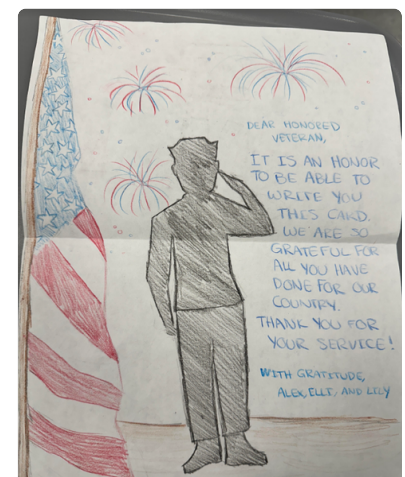 DEAR HONORED
VETERAN,
IT IS AN HONOR
TO BE ABLE TO
WRITE YOU
THIS CARD.
WE ARE SO
GRATEFUL FOR
ALL YOU HAVE
DONE FOR OUR
COUNTRY.
THANK YOU FOR
YOUR SERVICE!
WITH GRATITUDE,
ALEX, ELLT, AND LILY